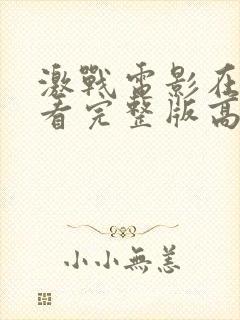 激戰電影在
看完整版高
小小無恙